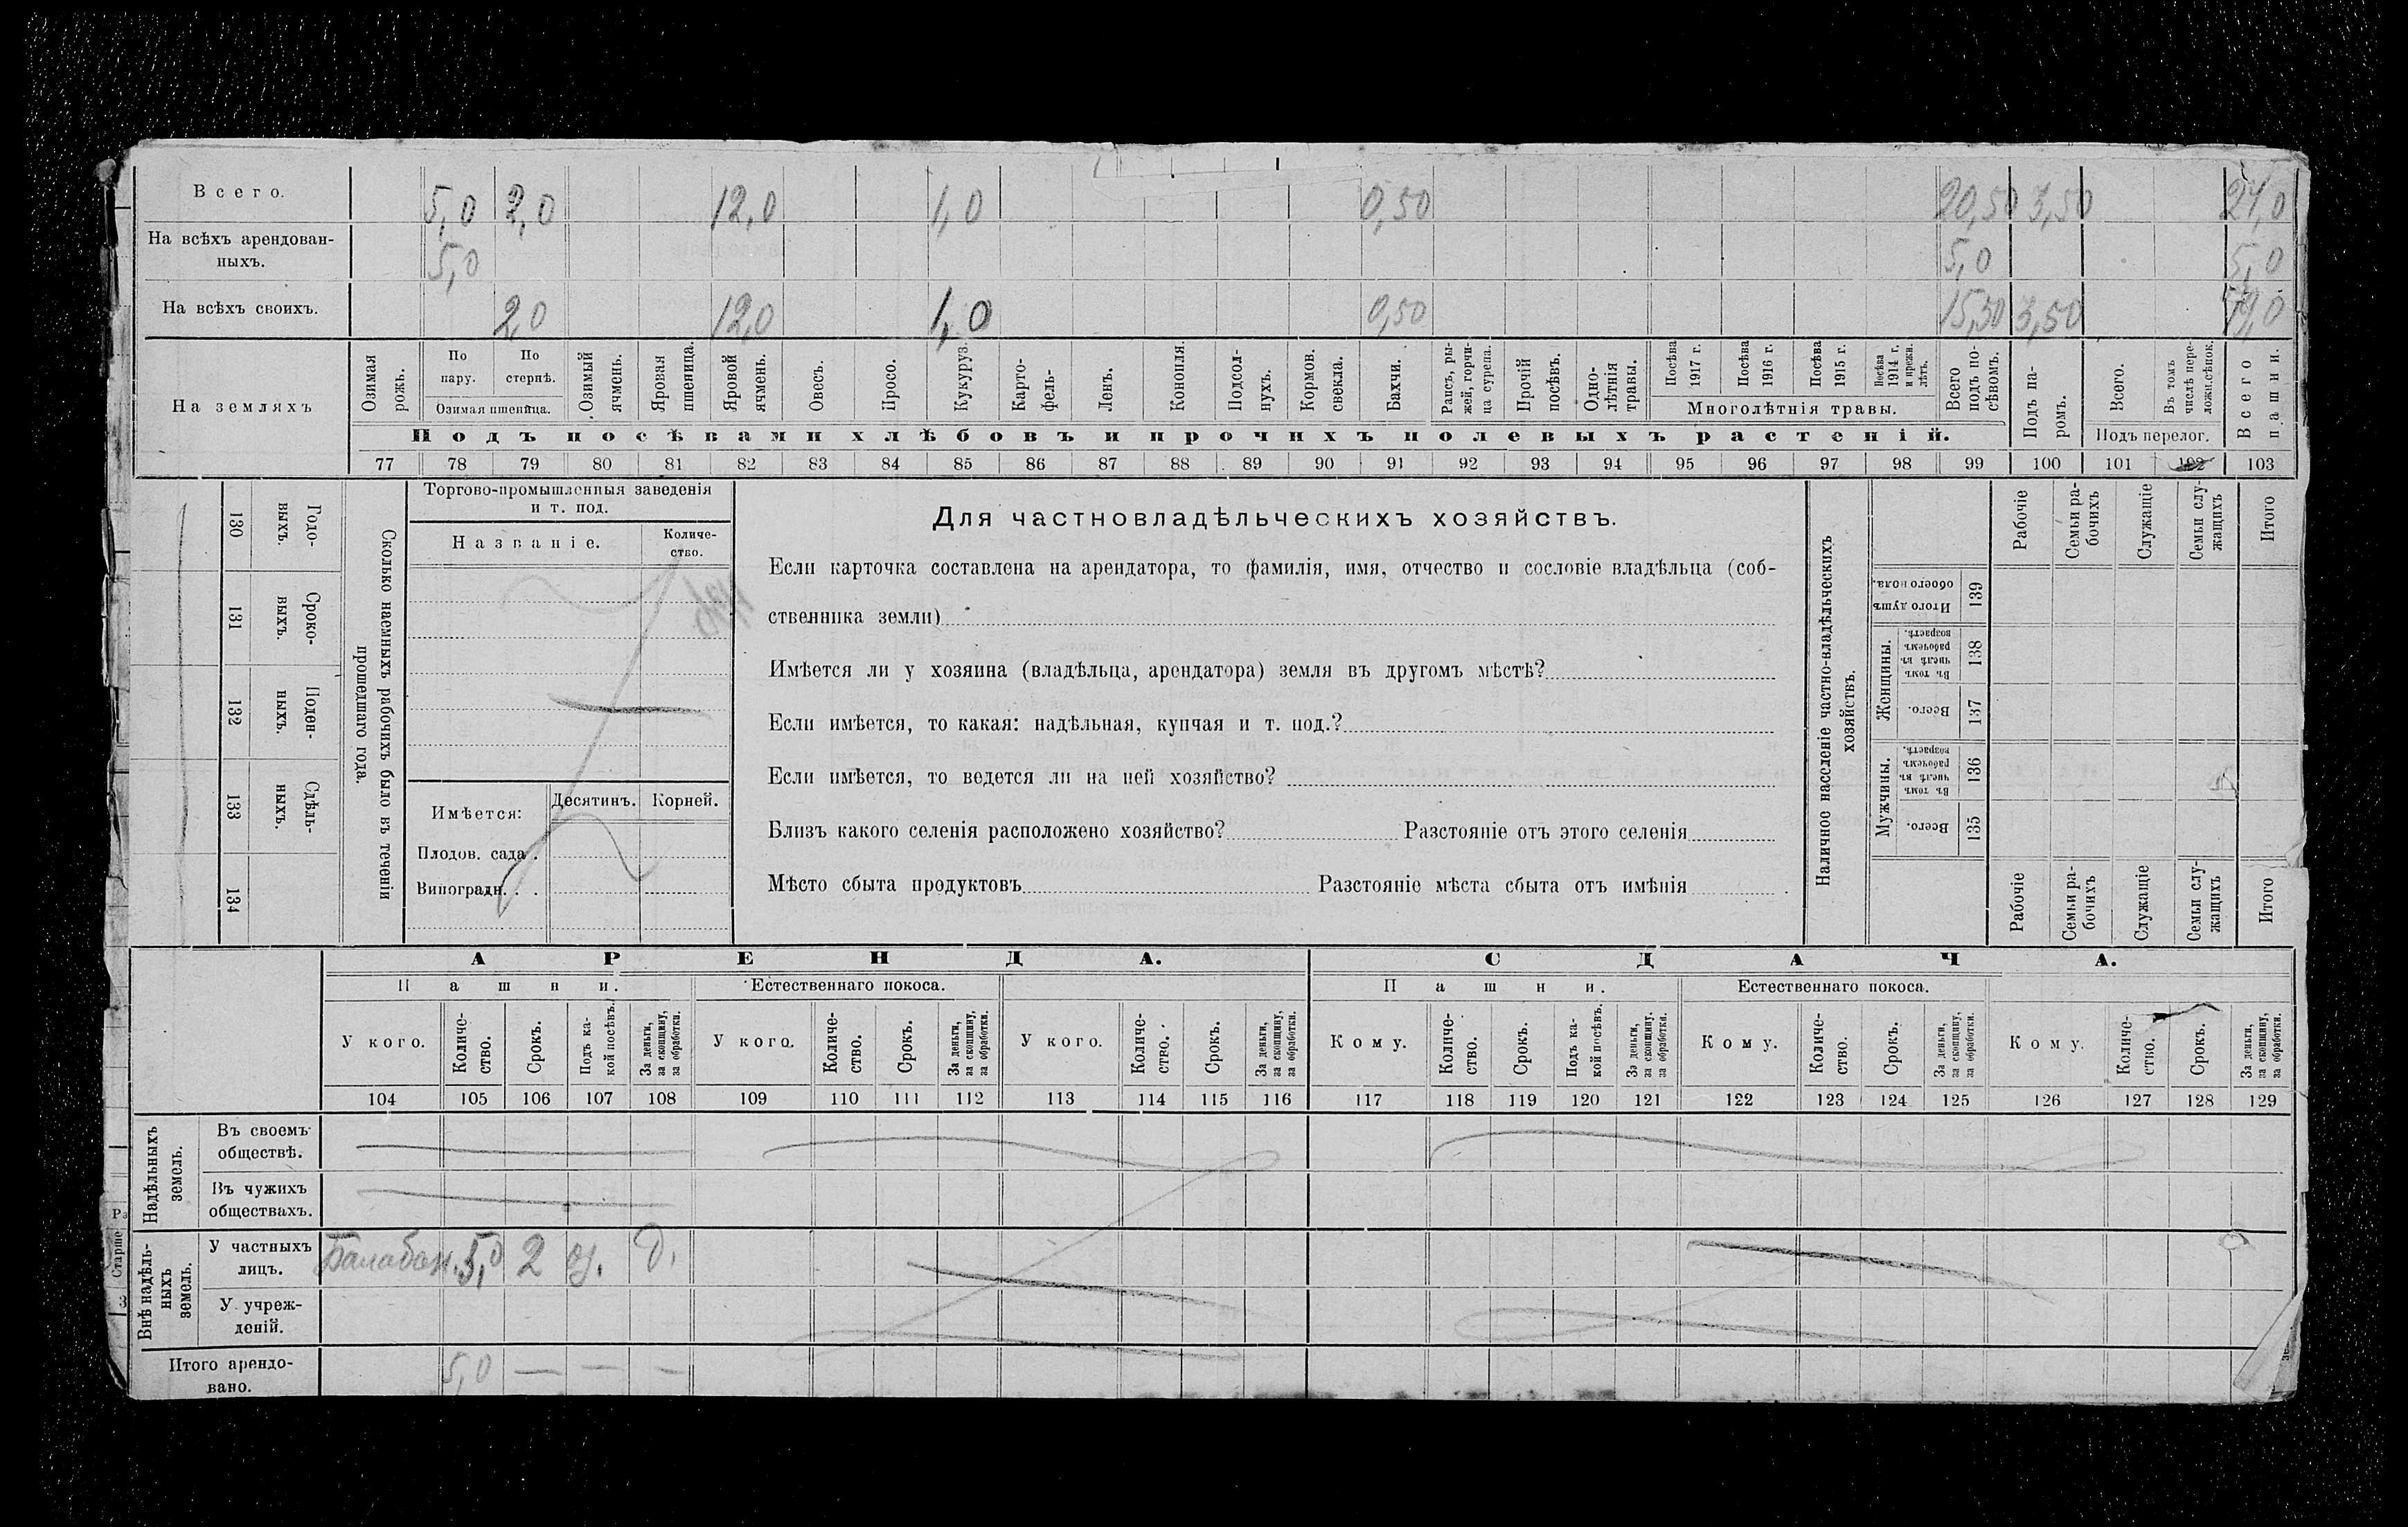 Всего. 5,0 2,0 12,0 1,0 0,50 20,50 3,50 24,0
На всѣхъ арендован-
ныхъ. 5,0 5,0 5,0
На всѣхъ своихъ. 2,0 12,0 1,0 0,50 15,50 3,50 19,0
На земляхъ
Озимая рожь.
По пару.
По стернѣ.
Озимая пшеница.
Озимый ячмень.
Яровая пшеница.
Яровой ячмень.
Овосъ.
Просо.
Кукуруз.
Карто-
фель-
Ленъ.
Конопля.
Подсол-
нухъ.
Кормов.
свекла.
Бахчи.
Рапсъ, ры-
жей, горчи-
ца сурепа.
Прочій
посѣвъ.
Одно-
лѣтнія
травы.
Посѣва 1917 г.
Посѣва 1916 г.
Посѣва 1915 г.
Посѣва 1914 г. и прежн. лѣтъ.
Многолѣтнія травы.
Всего подъ по-
сѣвомъ.
Подъ па-
ромъ.
Всего.
Въ томъ числѣ пере-
ложн.сѣнок.
Подъ перелог.
Всего пашни.
Подъ посѣвами хлѣбовъ и прочихъ полевыхъ растеній.
77 78 79 80 81 82 83 84 85 86 87 88 89 90 91 92 93 94 95 96 97 98 99 100 101 102 103
130 Годо-
выхъ.
131 Сроко-
выхъ.
132 Поден-
ныхъ.
133 Сдѣль-
ныхъ.
134
Сколько наемныхъ рабочихъ было въ теченіи
прошедшаго года.
Торгово-промышленныя заведенія
и т. под.
Названіе.
Количе-
ство.
Имѣется: Десятинъ. Корней.
Плодов. сада.
Виноградн. . .
Для частновладѣльческихъ хозяйствъ.
Если карточка составлена на арендатора, то фамилія, имя, отчество и сословіе владѣльца (соб-
ственника земли)
Имѣется ли у хозяина (владѣльца, арендатора) земля въ другомъ мѣстѣ?
Если имѣется, то какая: надѣльная, купчая и т. под.?
Если имѣется, то ведется ли на ней хозяйство?
Близъ какого селенія расположено хозяйство? Разстояніе отъ этого селенія
Мѣсто сбыта продуктовъ Разстояніе мѣста сбыта отъ имѣнія
Наличное населеніе частно-владѣльческихъ
хозяйствъ.
Рабочіе
Семьи ра-
бочихъ
Служащіе
Семьи слу-
жащихъ
Итого
Итого душъ обоего пола. 139
Женщины.
Въ томъ числѣ въ рабочемъ возрастѣ. 138
Всего. 137
Мужчины.
Въ томъ числѣ въ рабочемъ возрастѣ. 136
Всего. 135
Рабочіе
Семьи ра-
бочихъ
Служащіе
Семьи слу-
жащихъ
Итого
АРЕНДА. СДАЧА.
Пашни. Естественнаго покоса. Пашни. Естественнаго покоса.
У кого. Количе-
ство. Срокъ. Подъ ка-
кой посѣвъ. За деньги,
за скопщину,
за обработки.
У кого. Количе-
ство. Срокъ. За деньги,
за скопщину,
за обработки.
У кого. Количе-
ство. Срокъ. За деньги,
за скопщину,
за обработки.
Кому. Количе-
ство. Срокъ. Подъ ка-
кой посѣвъ. За деньги,
за скопщину.
за обработки.
Кому. Количе-
ство. Срокъ. За деньги,
за скопщину,
за обработки.
Кому. Количе-
ство. Срокъ. За деньги,
за скопщину,
за обработки.
104 105 106 107 108 109 110 111 112 113 114 115 116 117 118 119 120 121 122 123 124 125 126 127 128 129
Надѣльныхъ
земель.
Въ своемъ
обществѣ.
Въ чужихъ
обществахъ.
Внѣ надѣль-
ныхъ
земель.
У частныхъ
лицъ. Балабан. 5,0 2 оз. д.
У учреж-
деній.
Итого арендо-
вано. 5,0 — — —
Старше
3